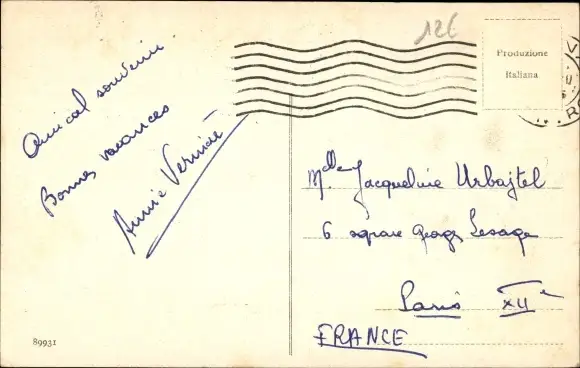 126
Produzione
Italiana
Amical souvenir
Bonnes vacances
Annie
Mlle Jacqueline Urbajtel
6 square George Lesage
Paris XIIe
FRANCE
89931